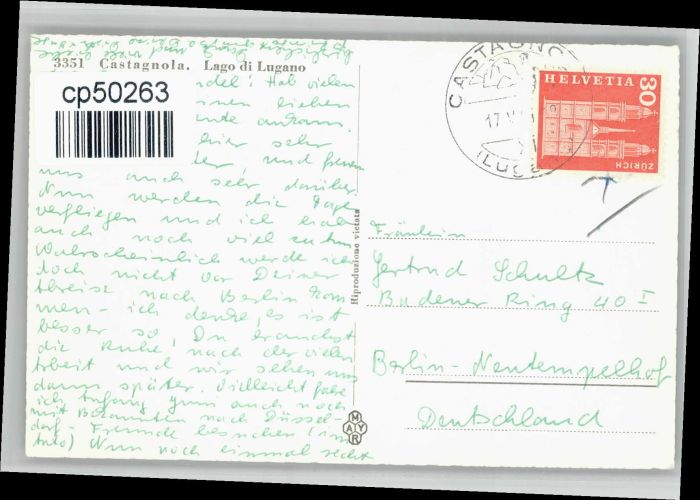 3351 Castagnola. Lago di Lugano
cp50263
Hab vielen
lieben
ankam.
hier sehr
und freuen
uns auch sehr darüber
Nun werden die Tage
verfliegen und ich habe
auch noch viel zu tun
Wahrscheinlich werde ich
doch nicht vor Deiner
Abreise nach Berlin kom
men - ich denke, es ist
besser so! Du brauchst
die Ruhe nach der vielen
Arbeit und wir sehen uns
dann später. Vielleicht fahre
ich Anfang Juni auch noch
mit Bekannten nach Düssel-
dorf - Freunde besuchen (im
Auto) Nun noch einmal recht
Riproduzione vietata
MAYR
CASTAGNOLA
17.V
(LUGANO)
HELVETIA
30
ZÜRICH
T
Fräulein
Gertrud Schultz
Badener Ring 40 I
Berlin-Neutempelhof
Deutschland